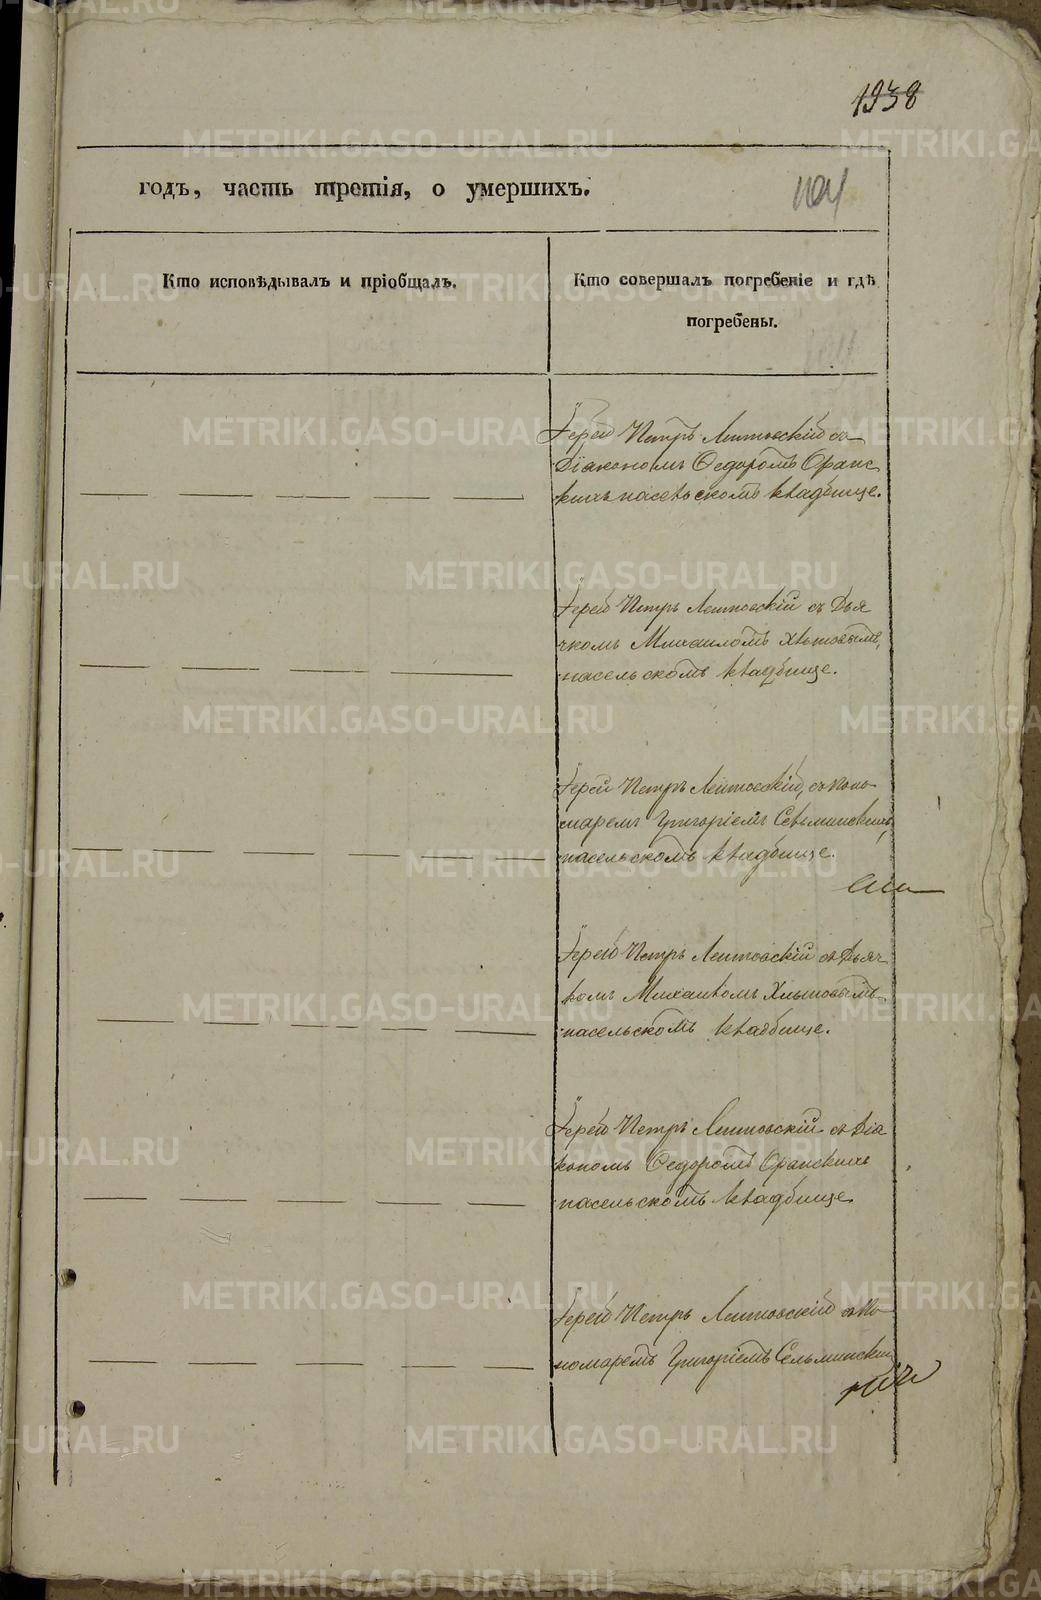 1938
годъ, часть третія, о умершихъ.
Кто исповѣдывалъ и пріобщалъ.
Кто совершалъ погребеніе и гдѣ
погребены.
Іерей Петръ Лентовскій съ
Діакономъ Ѳедоромъ
на сельскомъ кладбище.
Іерей Петръ Лентовскій съ Дья
чкомъ Михаиломъ
на сельскомъ кладбище.
Іерей Петръ Лентовскій, съ поно
маремъ Григоріемъ Сельминскимъ,
на сельскомъ кладбище.
Іерей Петръ Лентовскій съ Дьяч
комъ Михаиломъ
на сельскомъ кладбище.
Іерей Петръ Лентовскій съ Діа
кономъ Ѳедоромъ
на сельскомъ кладбище
Іерей Петръ Лентовскій съ По
номаремъ Григоріемъ Сельминским
METRIKI.GASO-URAL.RU